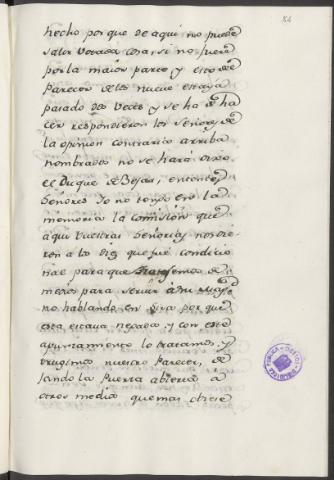 84
hecho porque de aqui no puede
salir votada cosa, si no fuere
por la maior parte, y este es
Parecer de los nueve estaya
pasado dos veces y se ha de ha
cer respondieron los Señores de
la opinion contraria arriba
nombrados no se hará dixo
el Duque de Bejar, entonces
Señores Yo no tengo en la
memoria la comision que
aqui vuestras Señorias nos die
ron a los diez que fué condicio
nal para que tratasemos de
medios para servir a su Mag.
no hablando en sisa por que
esta estava negada y con este
apuntamiento lo tratamos, y
trugimos nuestro Parecer, de
jando la Puerta abierta a
otros medios que mas diese